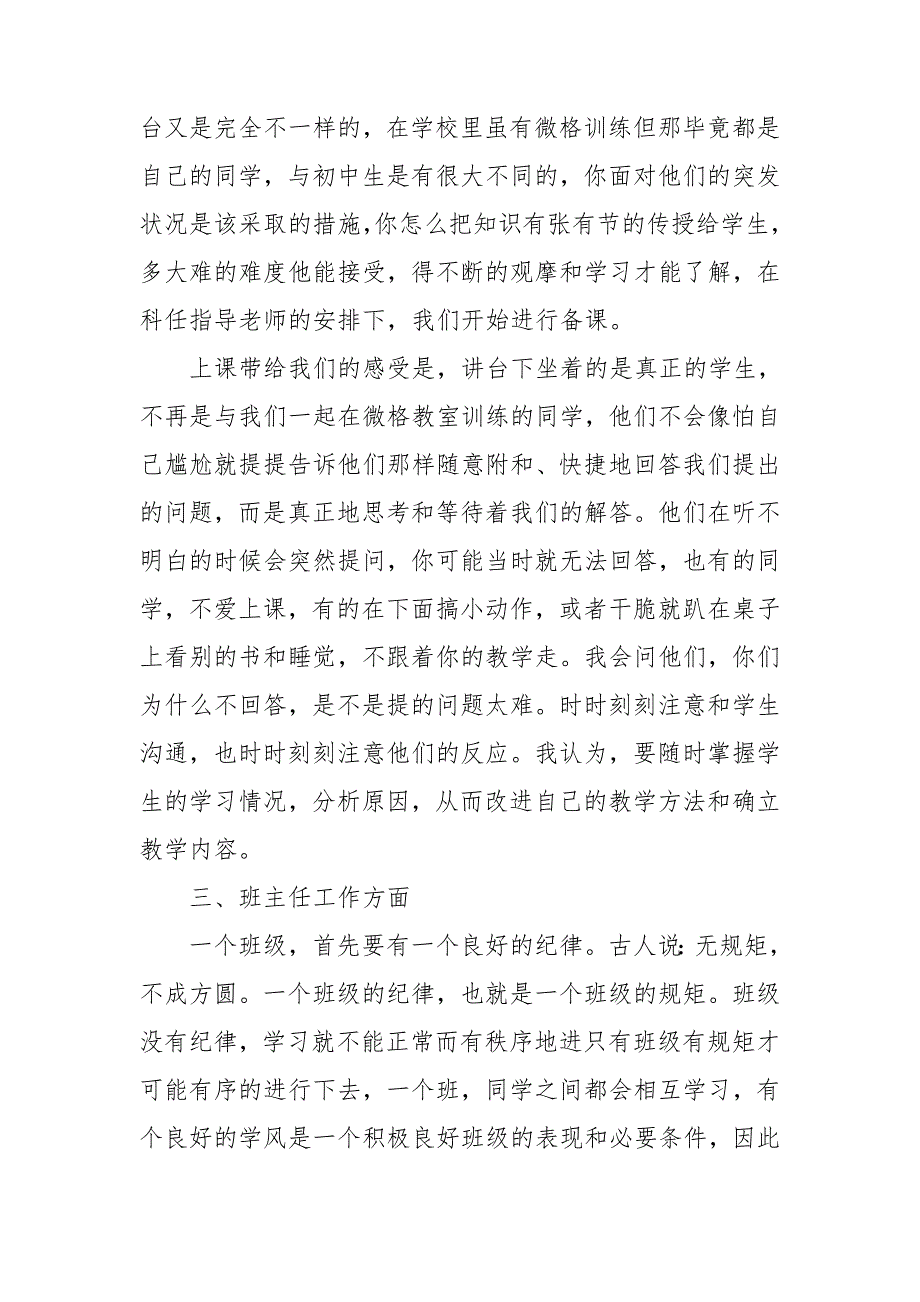 台又是完全不一样的，在学校里虽有微格训练但那毕竟都是
自己的同学，与初中生是有很大不同的，你面对他们的突发
状况是该采取的措施，你怎么把知识有张有节的传授给学生，
多大难的难度他能接受，得不断的观摩和学习才能了解，在
科任指导老师的安排下，我们开始进行备课。
上课带给我们的感受是，讲台下坐着的是真正的学生，
不再是与我们一起在微格教室训练的同学，他们不会像怕自
己尴尬就提提告诉他们那样随意附和、快捷地回答我们提出
的问题，而是真正地思考和等待着我们的解答。他们在听不
明白的时候会突然提问，你可能当时就无法回答，也有的同
学，不爱上课，有的在下面搞小动作，或者干脆就趴在桌子
上看别的书和睡觉，不跟着你的教学走。我会问他们，你们
为什么不回答，是不是提的问题太难。时时刻刻注意和学生
沟通，也时时刻刻注意他们的反应。我认为，要随时掌握学
生的学习情况，分析原因，从而改进自己的教学方法和确立
教学内容。
三、班主任工作方面
一个班级，首先要有一个良好的纪律。古人说：无规矩，
不成方圆。一个班级的纪律，也就是一个班级的规矩。班级
没有纪律，学习就不能正常而有秩序地进只有班级有规矩才
可能有序的进行下去，一个班，同学之间都会相互学习，有
个良好的学风是一个积极良好班级的表现和必要条件，因此